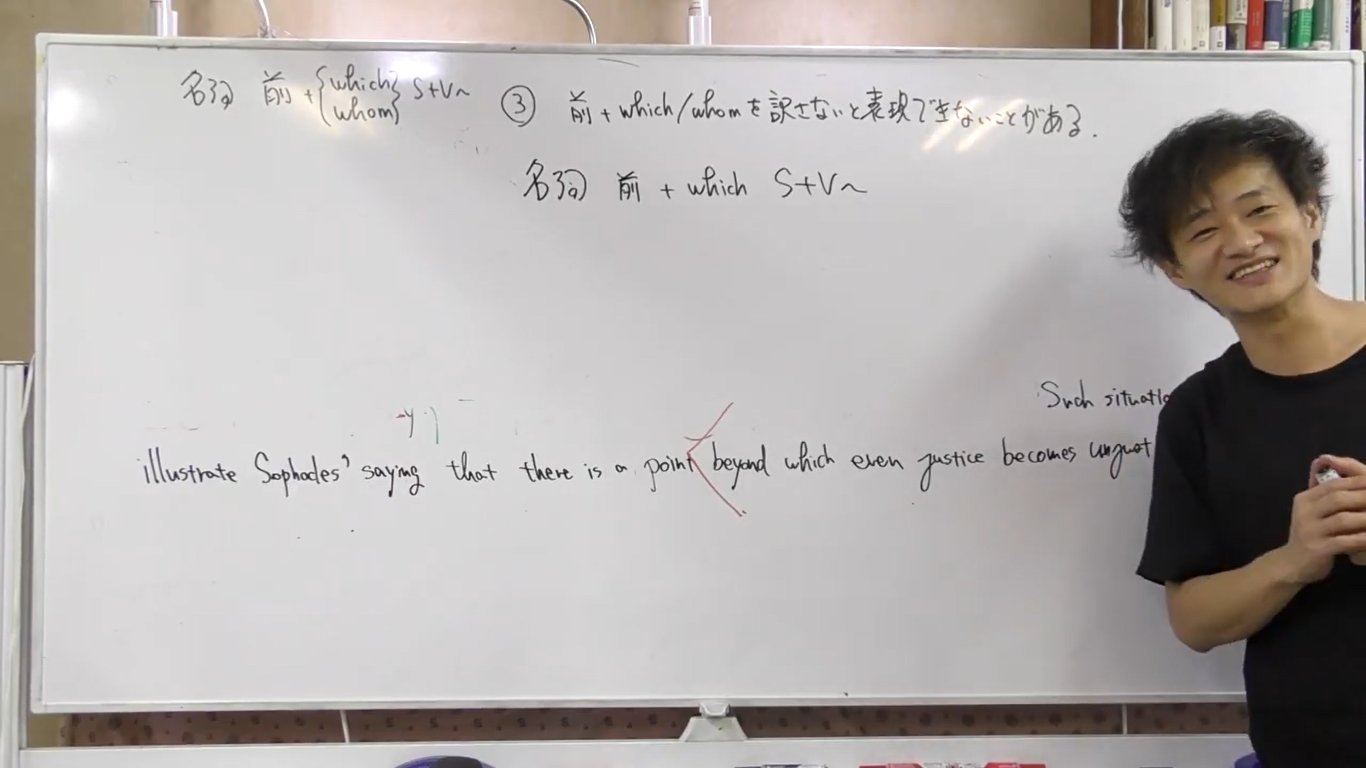 名詞 前 + {which/whom} S+V~
③ 前 + which/whomを訳さないと表現できないことがある.
名詞 前 + which S+V~
Such situatio
illustrate Sophodes' saying that there is a point beyond which even justice becomes unjust